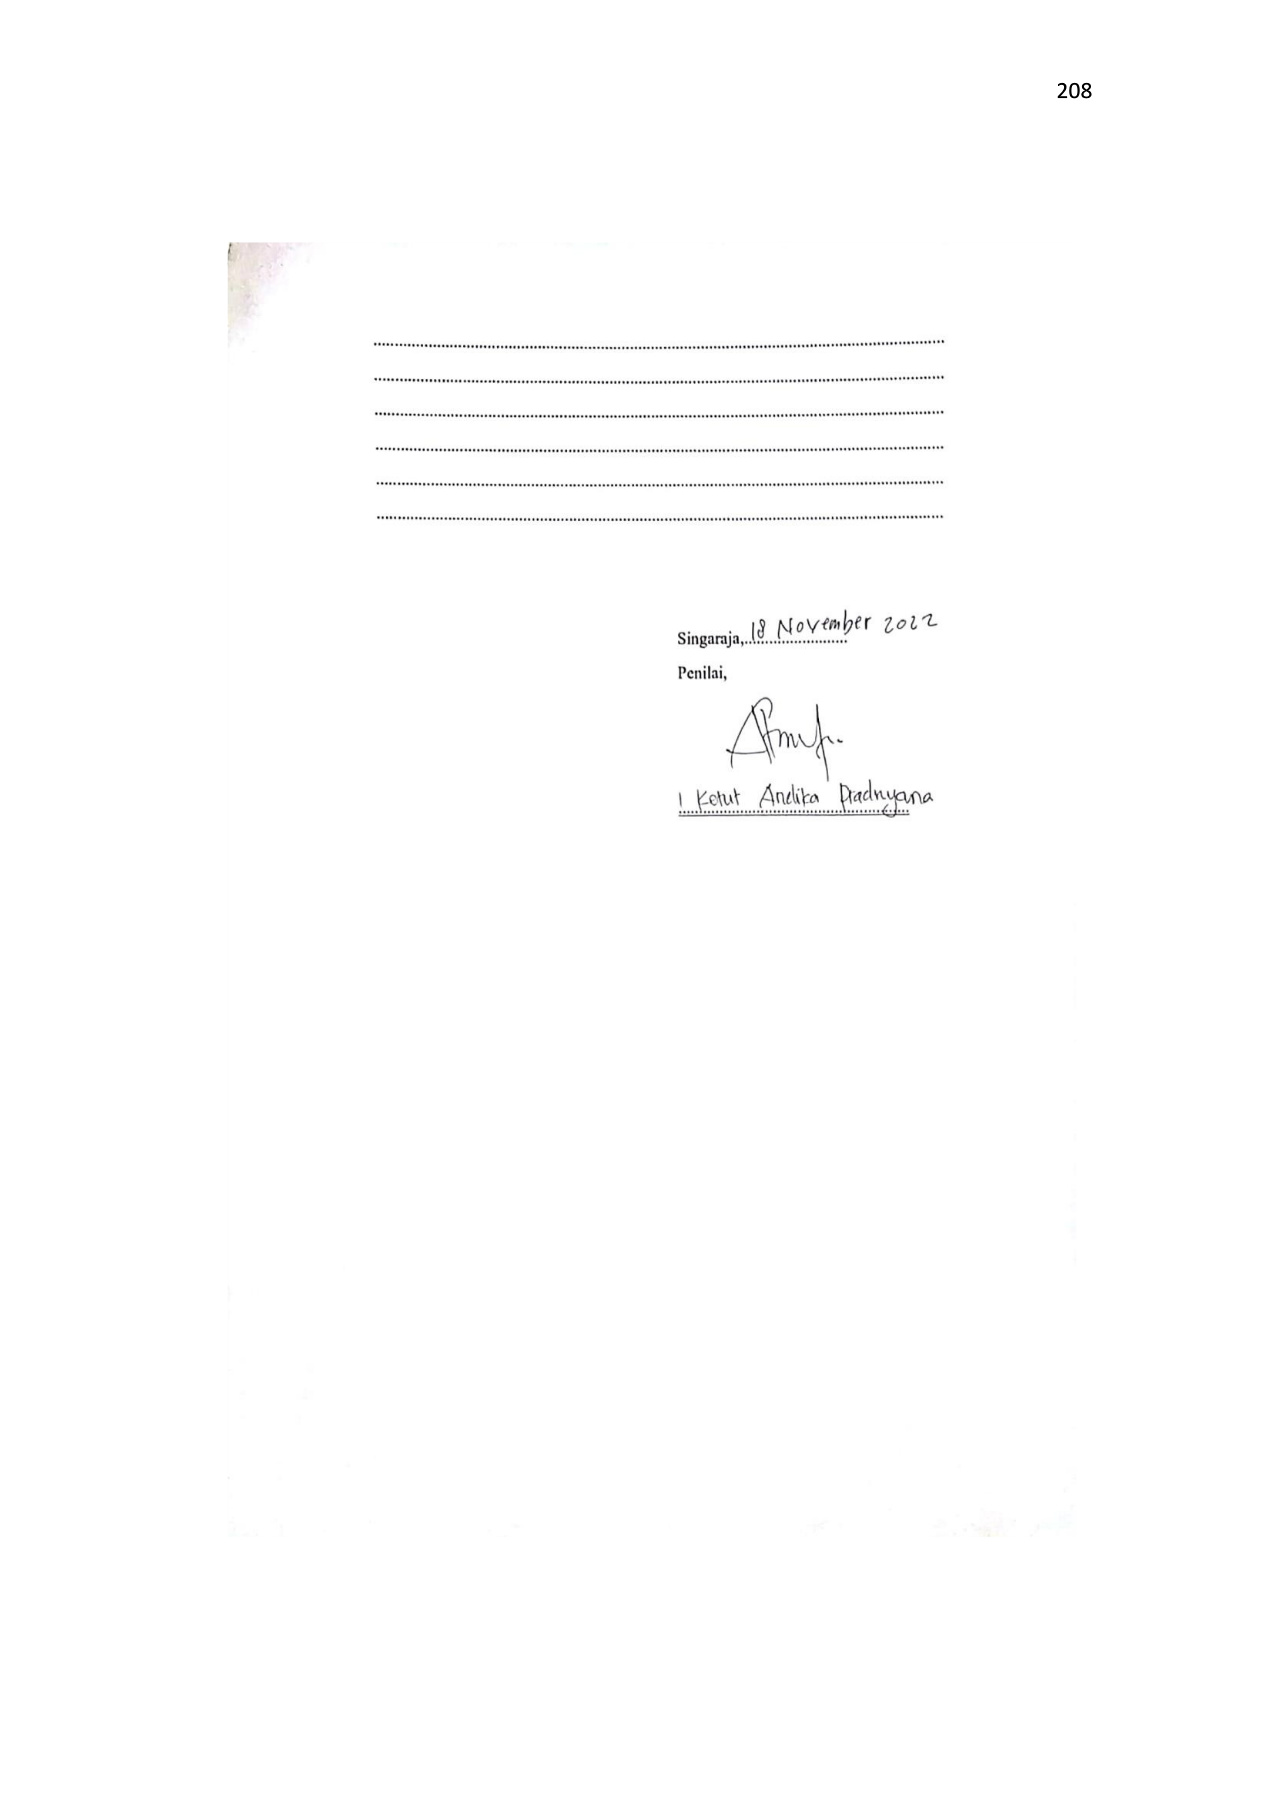 208
................................................................................
................................................................................
................................................................................
................................................................................
................................................................................
................................................................................
Singaraja, 18 November 2022
Penilai,
I Ketut Andika Pradnyana